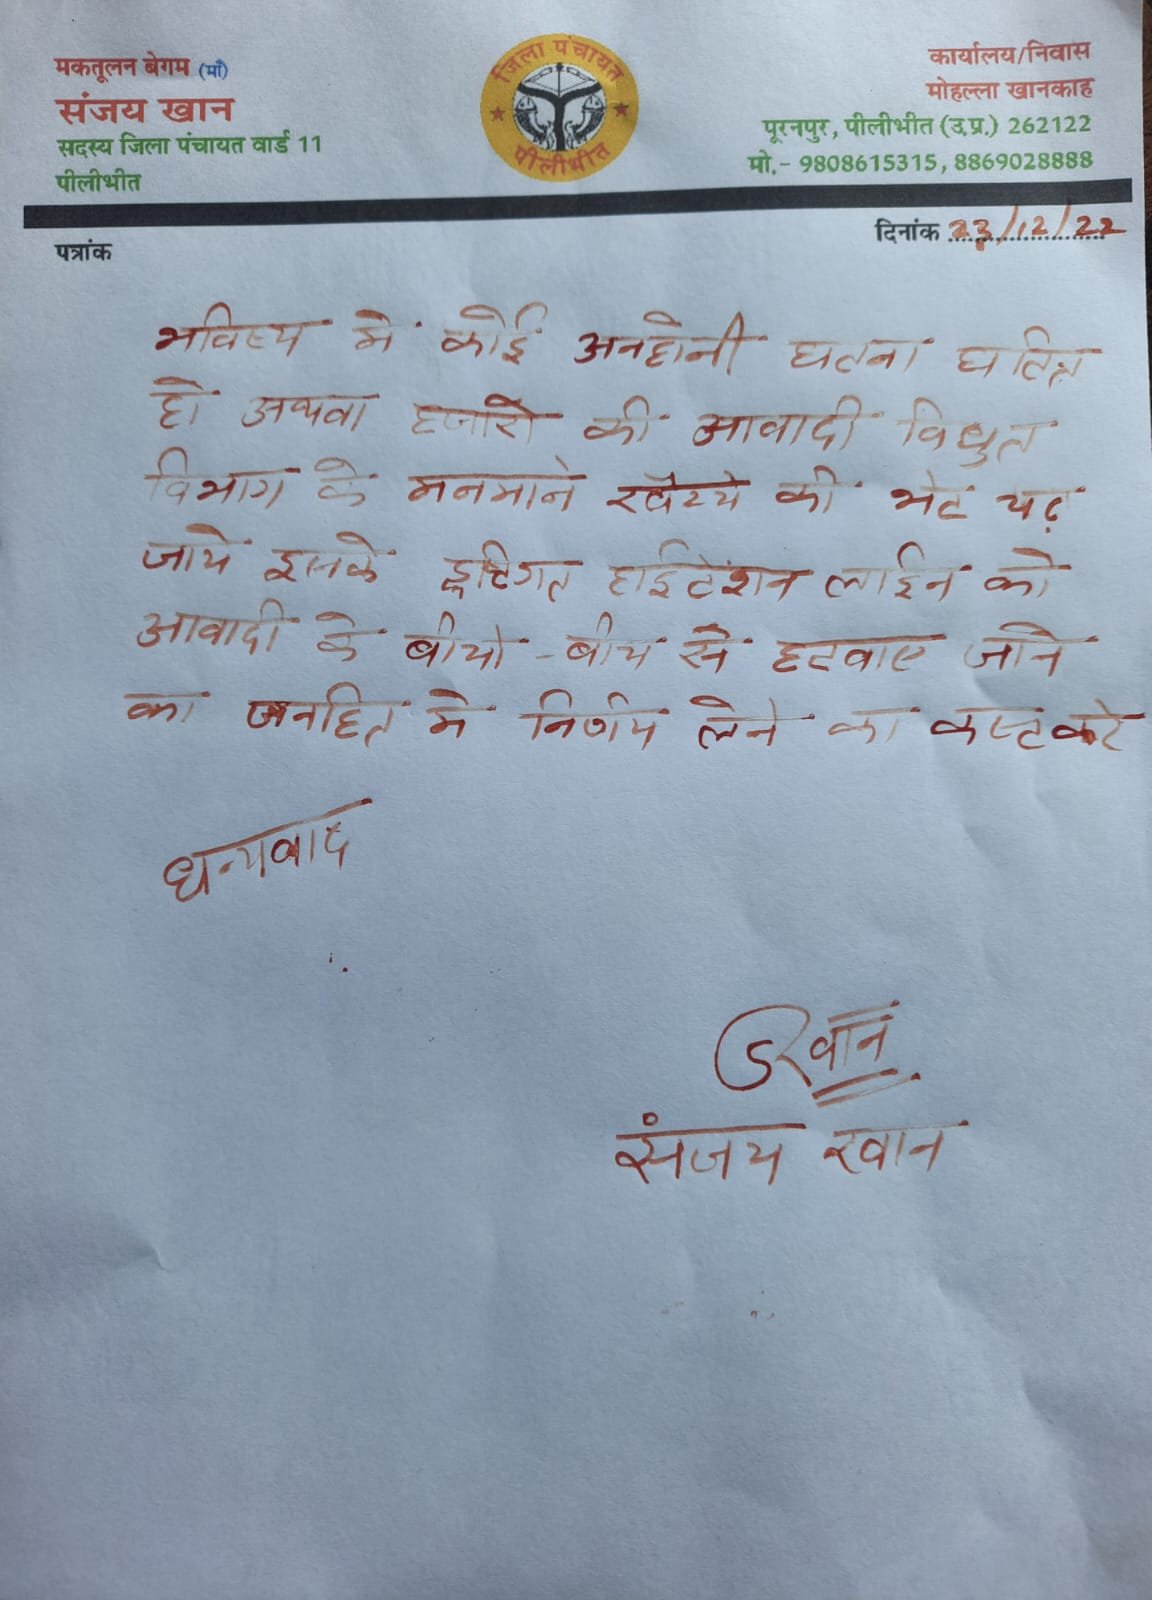 मकतूलन बेगम (माँ)
संजय खान
सदस्य जिला पंचायत वार्ड 11
पीलीभीत
जिला पंचायत
पीलीभीत
कार्यालय/निवास
मोहल्ला खानकाह
पूरनपुर, पीलीभीत (उ.प्र.) 262122
मो.- 9808615315, 8869028888
पत्रांक
दिनांक 23/12/22
भविष्य मे कोई अनहोनी घटना घटित
हो अथवा हजारो की आवादी विधुत
विभाग के मनमाने रवैय्ये की भेट चढ़
जाये इसके दृष्टिगत हाईटेंशन लाईन को
आवादी के बीचो-बीच से हटवाए जाने
का जनहित मे निर्णय लेने का कष्ट करे
धन्यवाद
खान
संजय खान